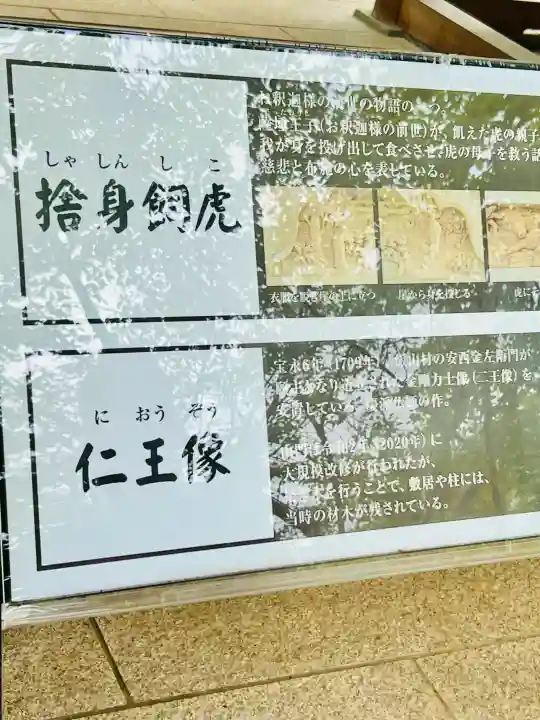 しゃしんしこ
捨身飼虎
お釈迦様の前世の物語の一つ。
王子(お釈迦様の前世)が、飢えた虎の親子
我が身を投げ出して食べさせ、虎の母子を救う話
慈悲と布施の心を表している。
衣服を脱ぎ崖の上に立つ
崖から身を投じる
虎に
におうぞう
仁王像
宝永6年(1709年)、山村の安西金左衛門が
金剛力士像(仁王像)を
安置している。
山門は令和2年(2020年)に
大規模改修が行われたが、
を行うことで、敷居や柱には、
当時の材木が残されている。